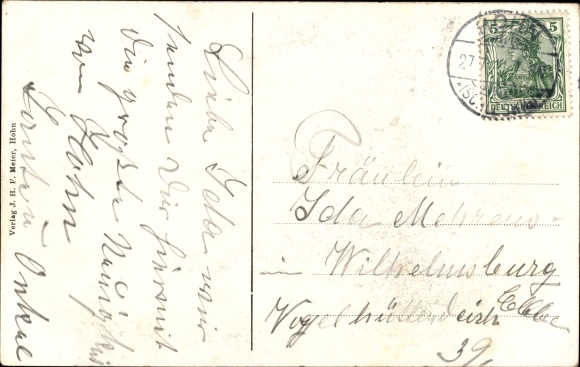 Liebe Ida wir
senden Dir hiermit
die große
von Hohn
Onkel
Verlag J. H. F. Meier, Hohn
5 5
DEUTSCHES REICH
27
Fräulein
Ida Mehrens
in Wilhelmsburg
Elbe
39.